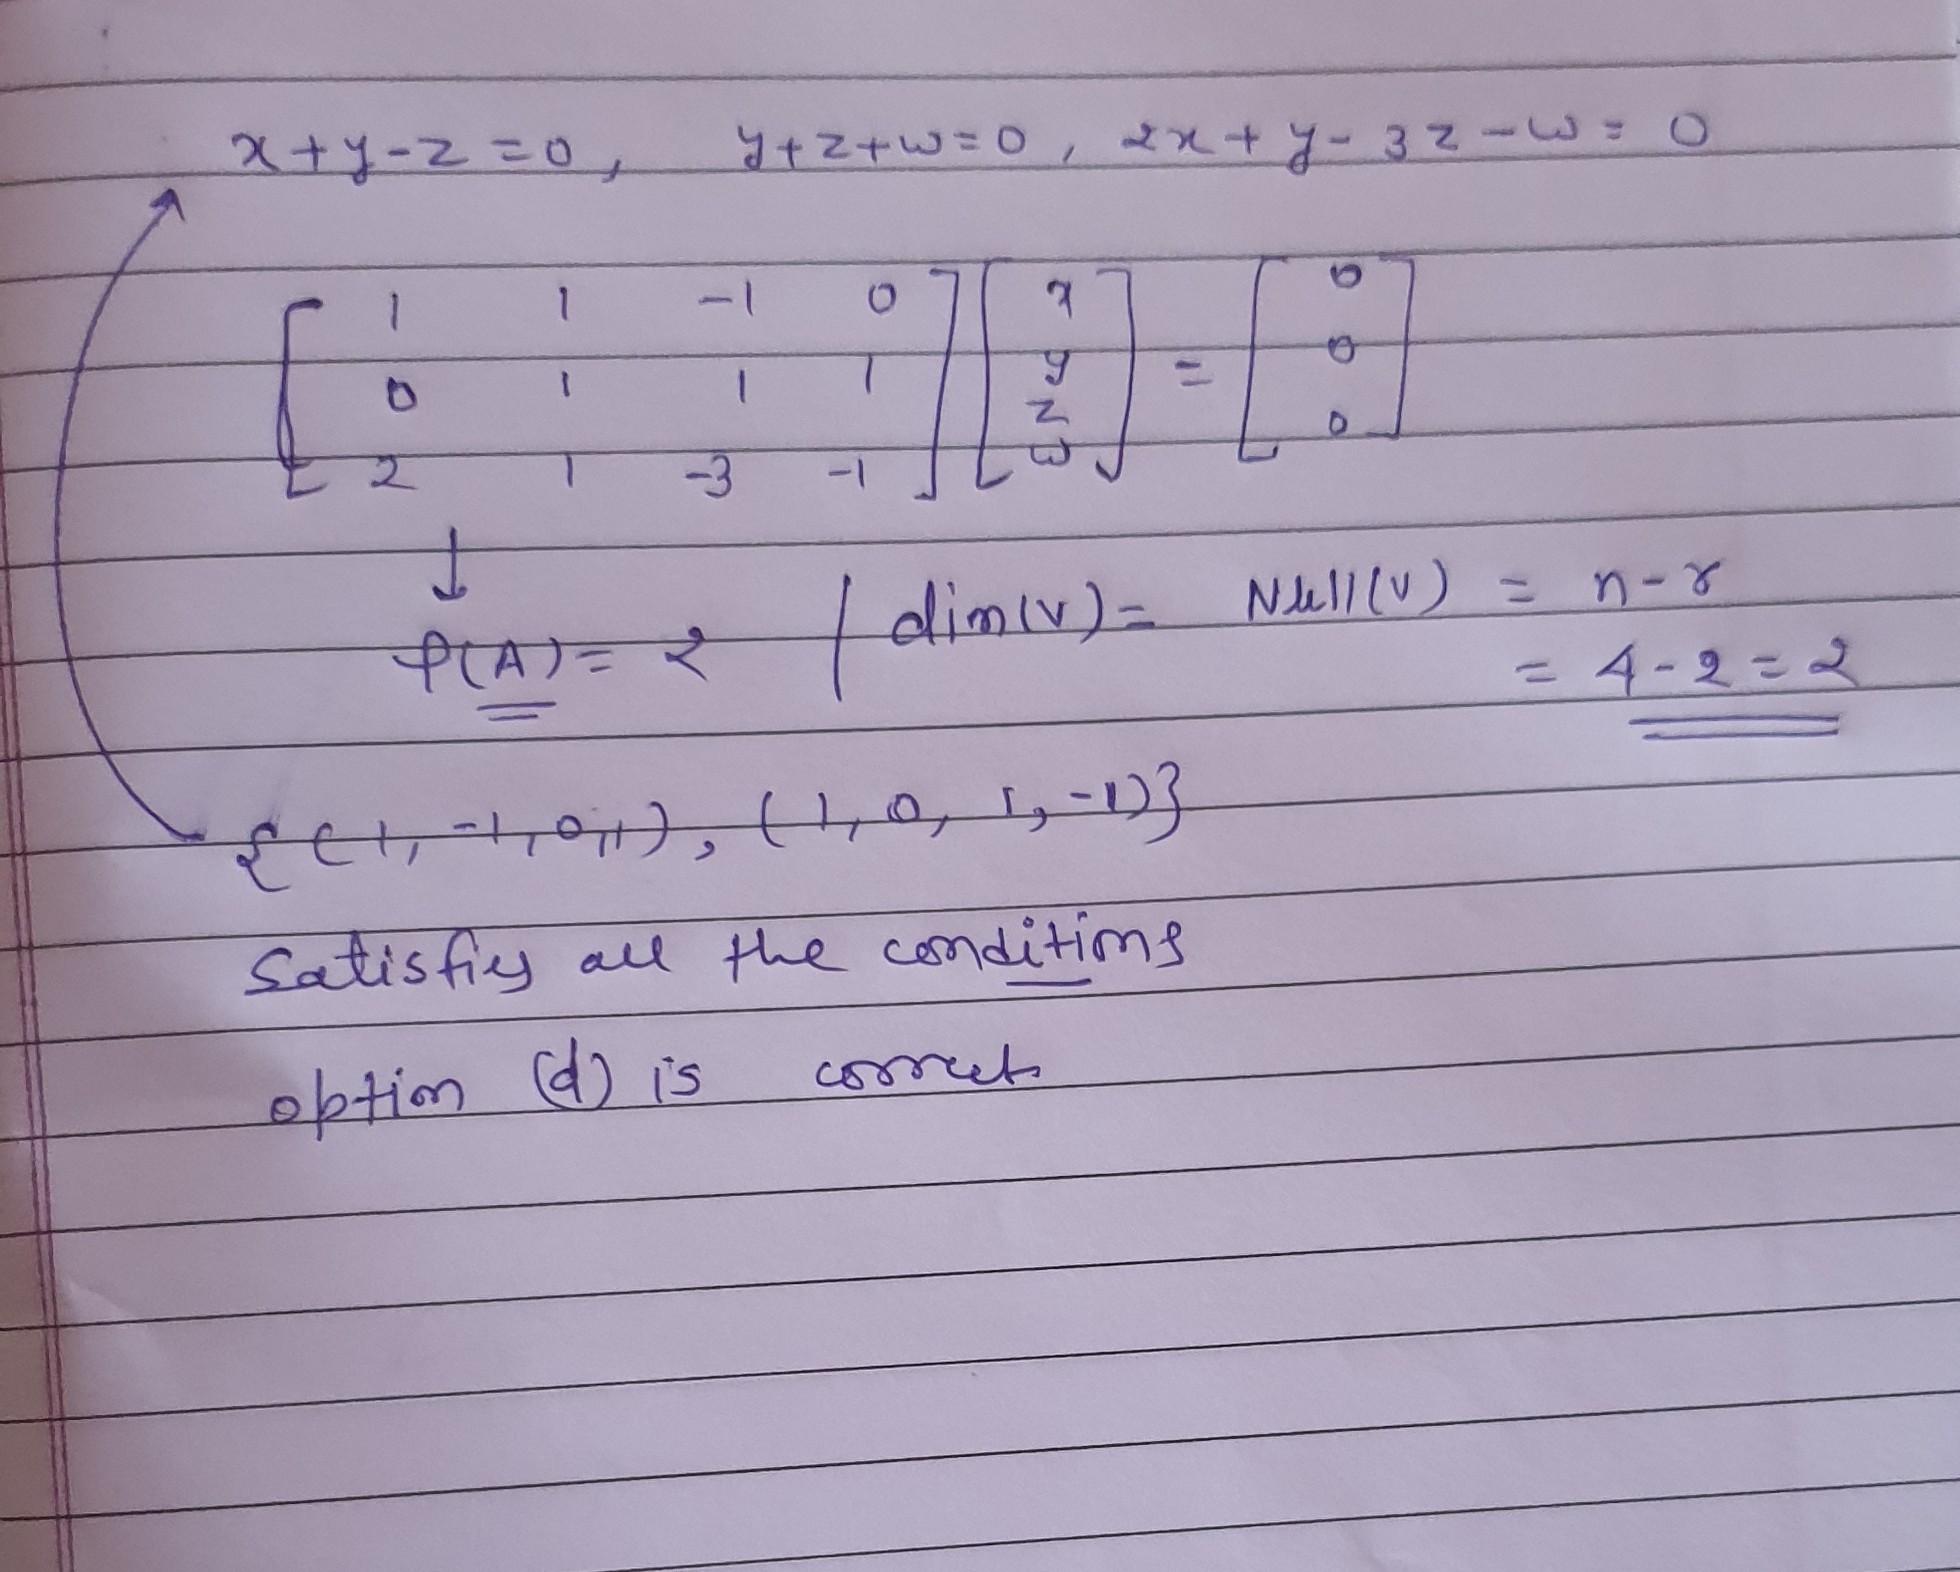 x+y-z=0, y+z+w=0, 2x+y-3z-w=0
[ 1 1 -1 0 ] [ x ] = [ 0 ]
[ 0 1 1 1 ] [ y ] [ 0 ]
[ 2 1 -3 -1 ] [ z ] [ 0 ]
[ w ]
↓
ρ(A)=2 / dim(v)= Null(v) = n-r
= 4-2=2
{(1,-1,0,1), (1,0,1,-1)}
Satisfies all the conditions
option (d) is correct